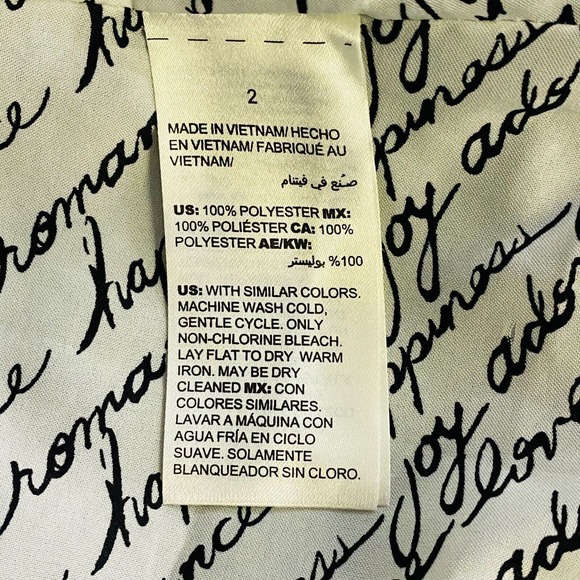 2
MADE IN VIETNAM/ HECHO
EN VIETNAM/ FABRIQUÉ AU
VIETNAM/
صُنع في فيتنام
US: 100% POLYESTER MX:
100% POLIÉSTER CA: 100%
POLYESTER AE/KW:
100% بوليستر
US: WITH SIMILAR COLORS.
MACHINE WASH COLD,
GENTLE CYCLE. ONLY
NON-CHLORINE BLEACH.
LAY FLAT TO DRY WARM
IRON. MAY BE DRY
CLEANED MX: CON
COLORES SIMILARES.
LAVAR A MÁQUINA CON
AGUA FRÍA EN CICLO
SUAVE. SOLAMENTE
BLANQUEADOR SIN CLORO.
joy
joy
joy
love